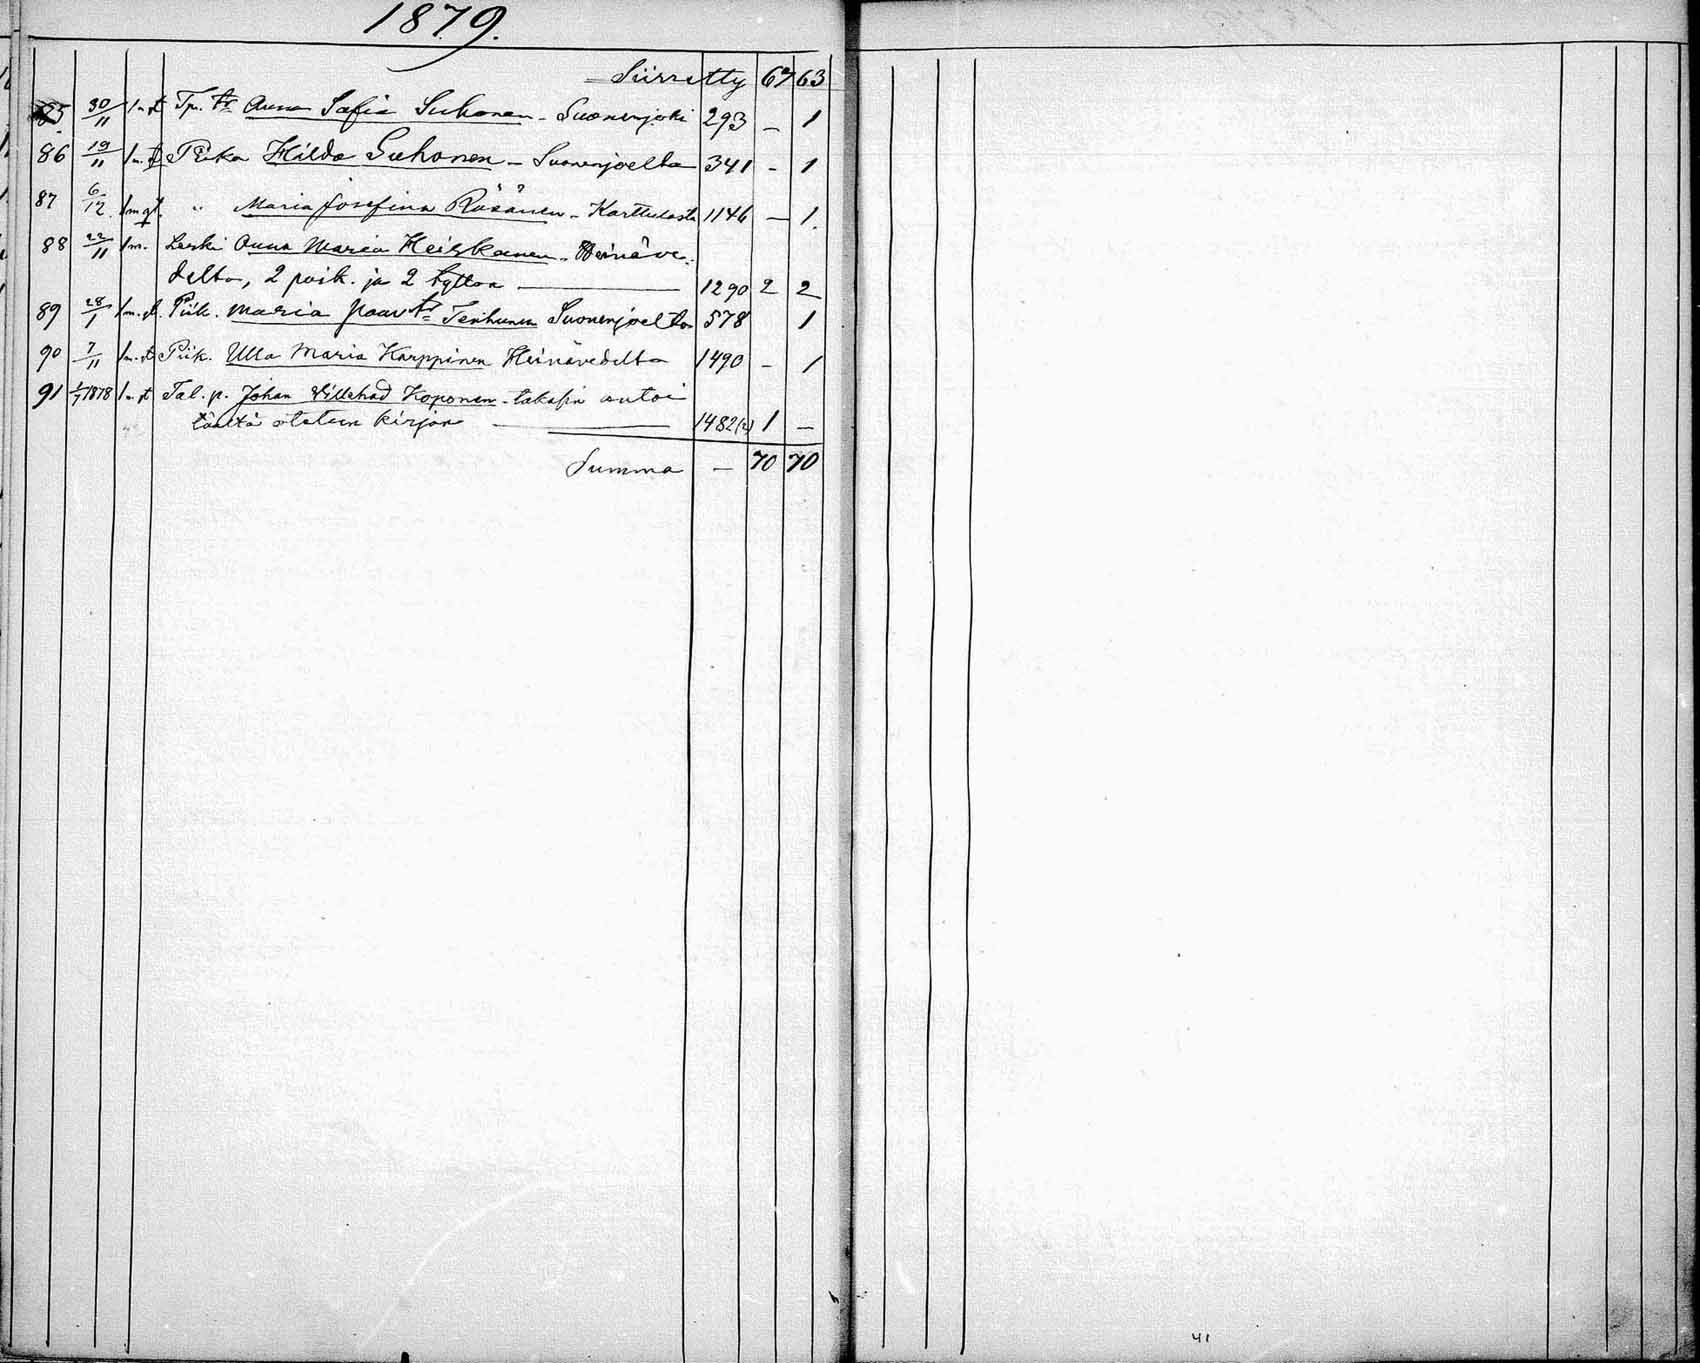 1879.
Siirretty 67 63
85 30/11 1 m. st Tp. tr Anna Sofia Suhonen - Suonenjoki 293 - 1
86 19/11 1 m. st Piika Hilda Suhonen - Suonenjoelta 341 - 1
87 6/12. 1 m st. " Maria Josefina Räsänen - Karttulasta 1146 - 1.
88 22/11 1 m. Leski Anna Maria Heiskanen - Heinäve-
deltä, 2 poik. ja 2 tyttöä 1290 2 2
89 28/1 1 m. st. Piik. Maria Paavtr Terhunen Suonenjoelta 578 1
90 7/11 1 m. st Piik. Ulla Maria Karppinen Heinävedeltä 1490 - 1
91 1/7 1878 1 m st Tal. p. Johan Villehad Koponen - takasin antoi
täältä otetun kirjan 1482 (2) 1 -
Summa - 70 70
41